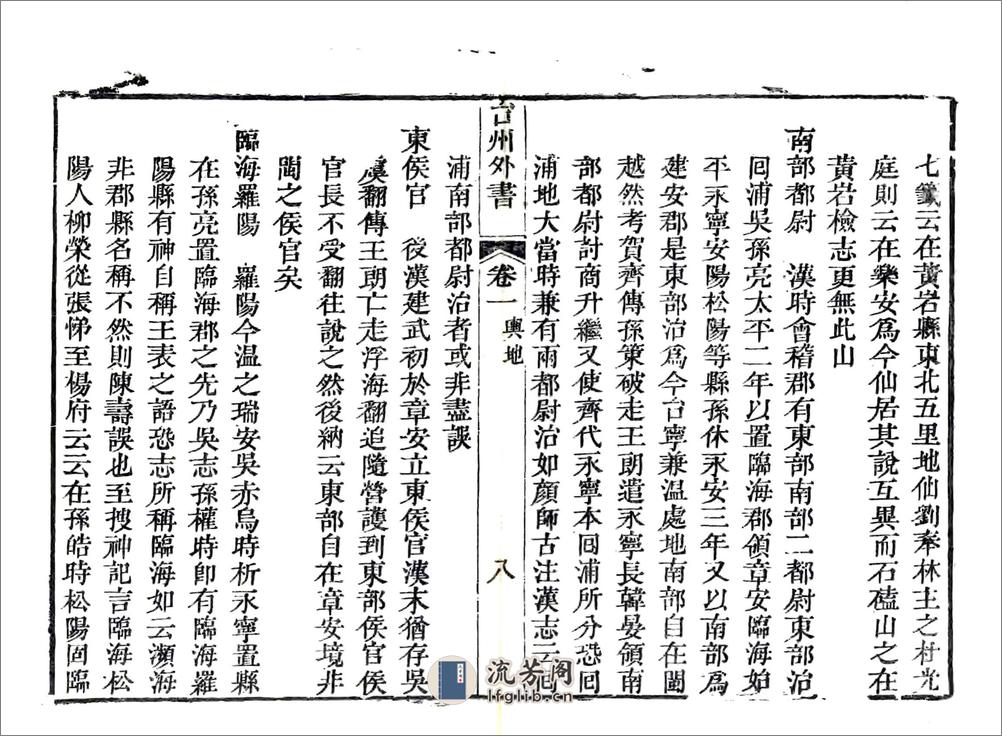 七籖云在黃岩縣東北五里地仙劉奉林主之杜光
庭則云在樂安為今仙居其說互異而石磕山之在
黃岩檢志更無此山
南部都尉　漢時會稽郡有東部南部二都尉東部治
回浦吳孫亮太平二年以置臨海郡領章安臨海始
平永寧安陽松陽等縣孫休永安三年又以南部為
建安郡是東部治為今台寧兼温處地南部自在閩
越然考賀齊傳孫策破走王朗遣永寧長韓晏領南
部都尉討商升繼又使齊代永寧本回浦所分恐回
浦地大當時兼有兩都尉治如顏師古注漢志云回
台州外書　卷一　輿地　八
浦南部都尉治者或非盡誤
東侯官　後漢建武初於章安立東侯官漢末猶存吳
虞翻傳王朗亡走浮海翻追隨營護到東部侯官侯
官長不受翻往說之然後納云東部自在章安境非
閩之侯官矣
臨海羅陽　羅陽今温之瑞安吳赤烏時析永寧置縣
在孫亮置臨海郡之先乃吳志孫權時卽有臨海羅
陽縣有神自稱王表之語恐志所稱臨海如云瀕海
非郡縣名稱不然則陳壽誤也至搜神記言臨海松
陽人柳榮從張悌至楊府云云在孫皓時松陽固臨
流芳阁
lfglib.cn